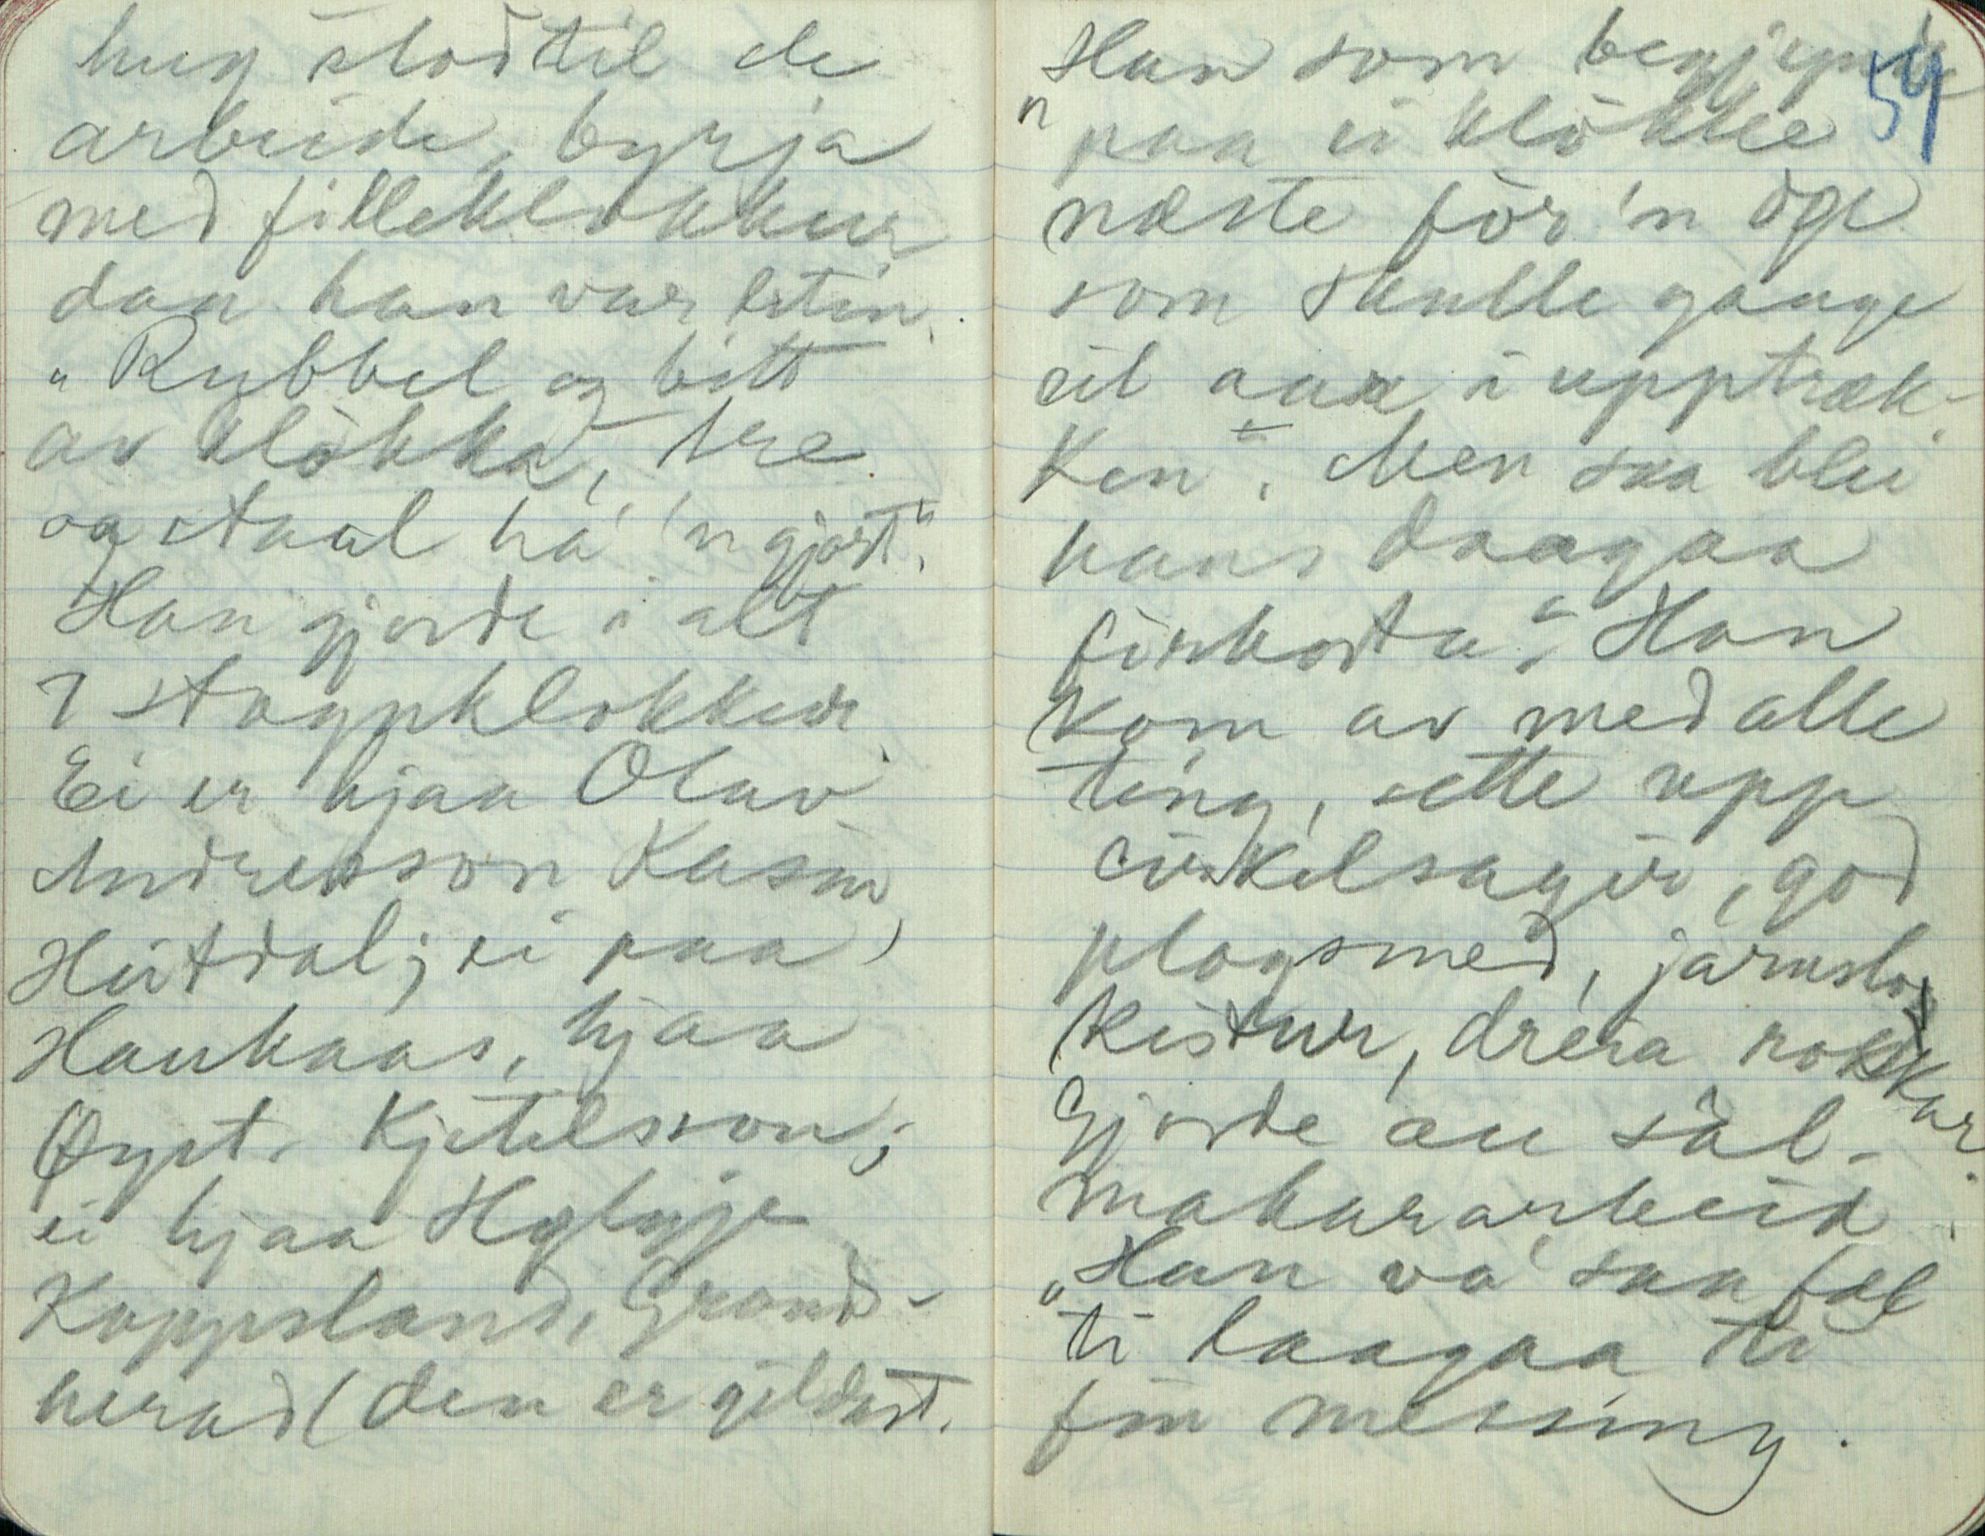 hug stod til de
arbeide, byrja
med filleklokkur
daa han var liten.
"Rubbel og bitt
av klòkka, tre
og staal ha' 'n gjort".
Han gjorde i alt
7 stogpklokkur.
Ei er hjaa Olav
Andresson Kasin
Hitdal; ei paa
Haukaas, hjaa
Øyst. Kjetilsson;
ei hjaa Hølje
Koppsland, Grand-
herad (den er gildast.
54
Han som begjynde
"paa ei klòkke
næste før 'n døe
som skulle gange
eit aar i upptræk-
ken". Men saa blei
hans daagaa
firkorta". Han
kom av med alle
ting, sette upp
cirkelsagir, god
plogsmed, jarnslo
kistur, dreia rokkar.
Gjorde au sål-
makararbeid.
"Han va' saa fæl
ti laagaa ti
fin messing.